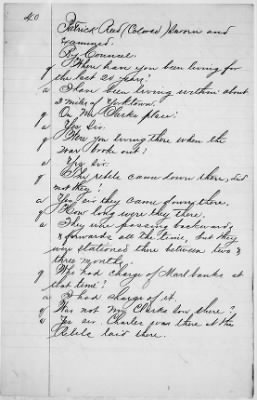 40
Patrick Reed (Colored) Sworn and
Examined.
By Counsel.
q Where have you been living for
the last 20 years?
a I have been living within about
2 miles of Yorktown.
q On Mr Clarks place?
a Yes Sir.
q Were you living there when the
war broke out?
a Yes sir.
q The rebels came down there, did
not they?
a Yes sir they came down there.
q How long were they there.
a They were passing backwards
& forwards all the time, but they
were stationed there between two &
three months.
q Who had charge of Marl banks at
that time?
a I had charge of it.
q Was not Mr Clarks son there?
a Yes sir. Charles was there at the
Rebels laid there.